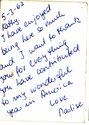 2-7-63
I have enjoyed
being here so much
and I want to thank
you for everything
you have contributed
to my wonderful
year in America
Love